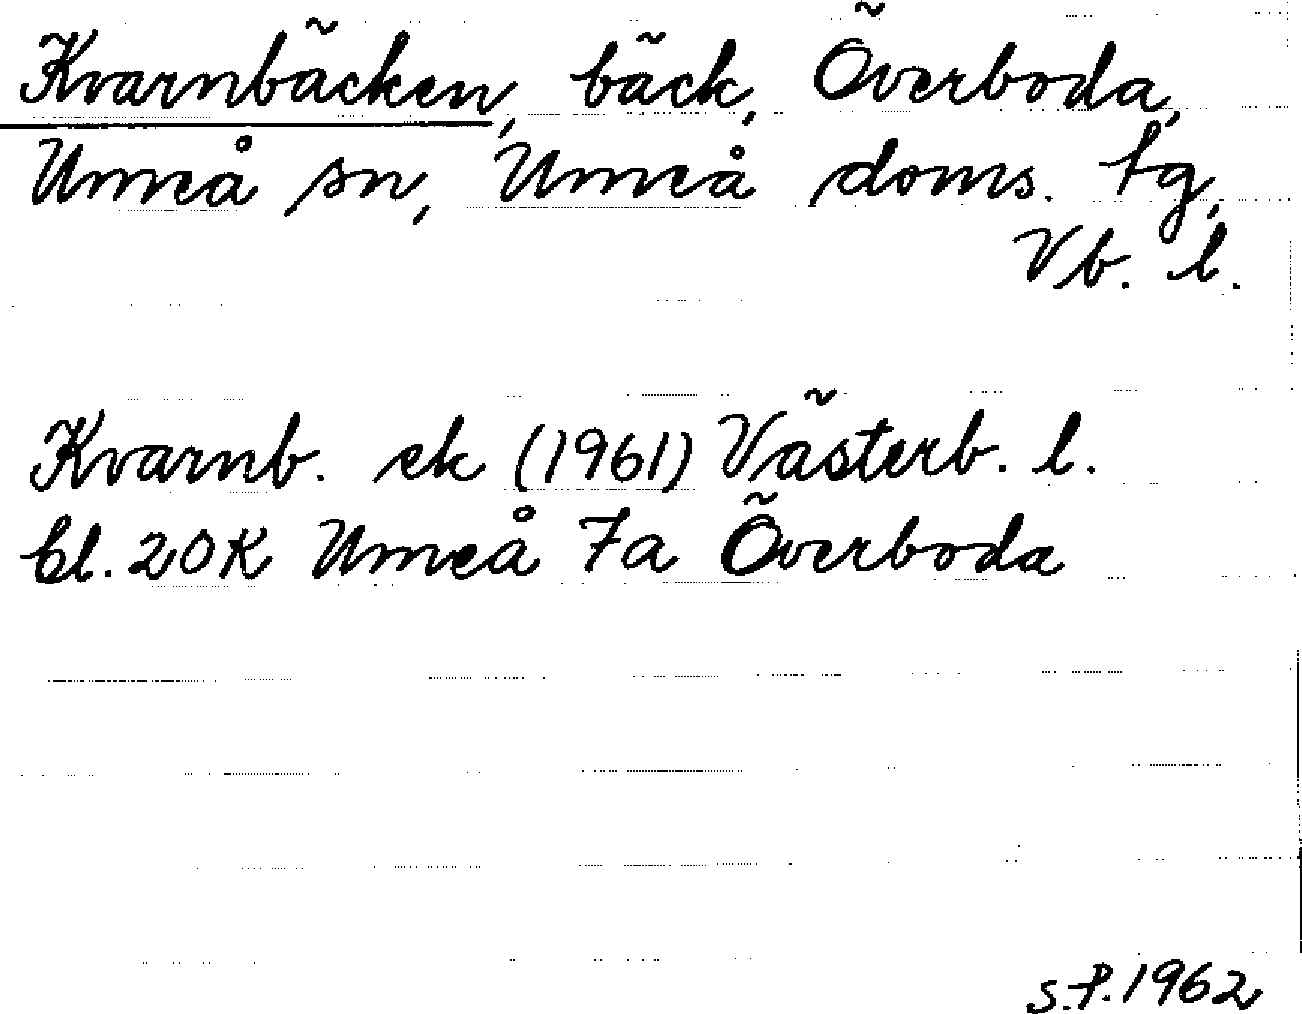 Kvarnbäcken, bäck, Överboda,
Umeå sn, Umeå doms. tg,
Vb. l.
Kvarnb. ek (1961) Västerb. l.
bl. 20K Umeå 7a Överboda
S.P. 1962